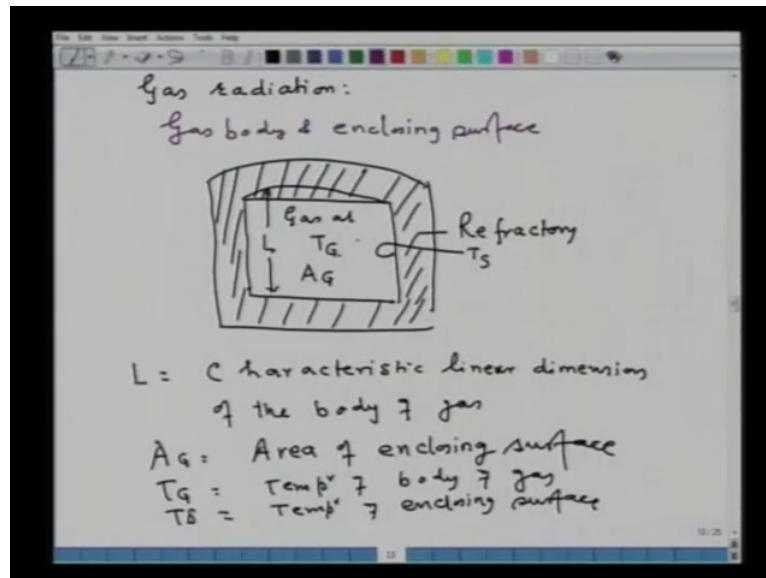 File Edit View Insert Actions Tools Help
Gas radiation:
Gas body & enclosing surface
Gas at
L TG
AG
Refractory
TS
L = Characteristic linear dimension
of the body of gas
AG = Area of enclosing surface
TG = Tempr of body of gas
TS = Tempr of enclosing surface
13/25
13